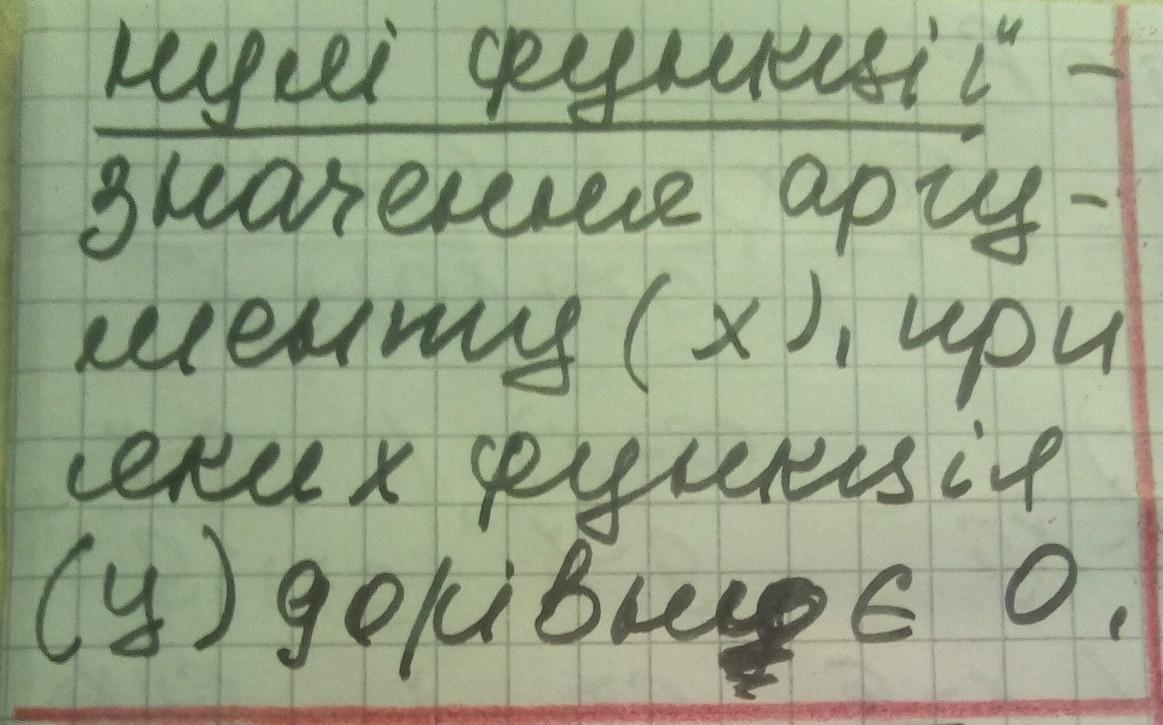 нулі функції" -
значення аргу-
менту (х), при
яких функція
(у) дорівнює 0.